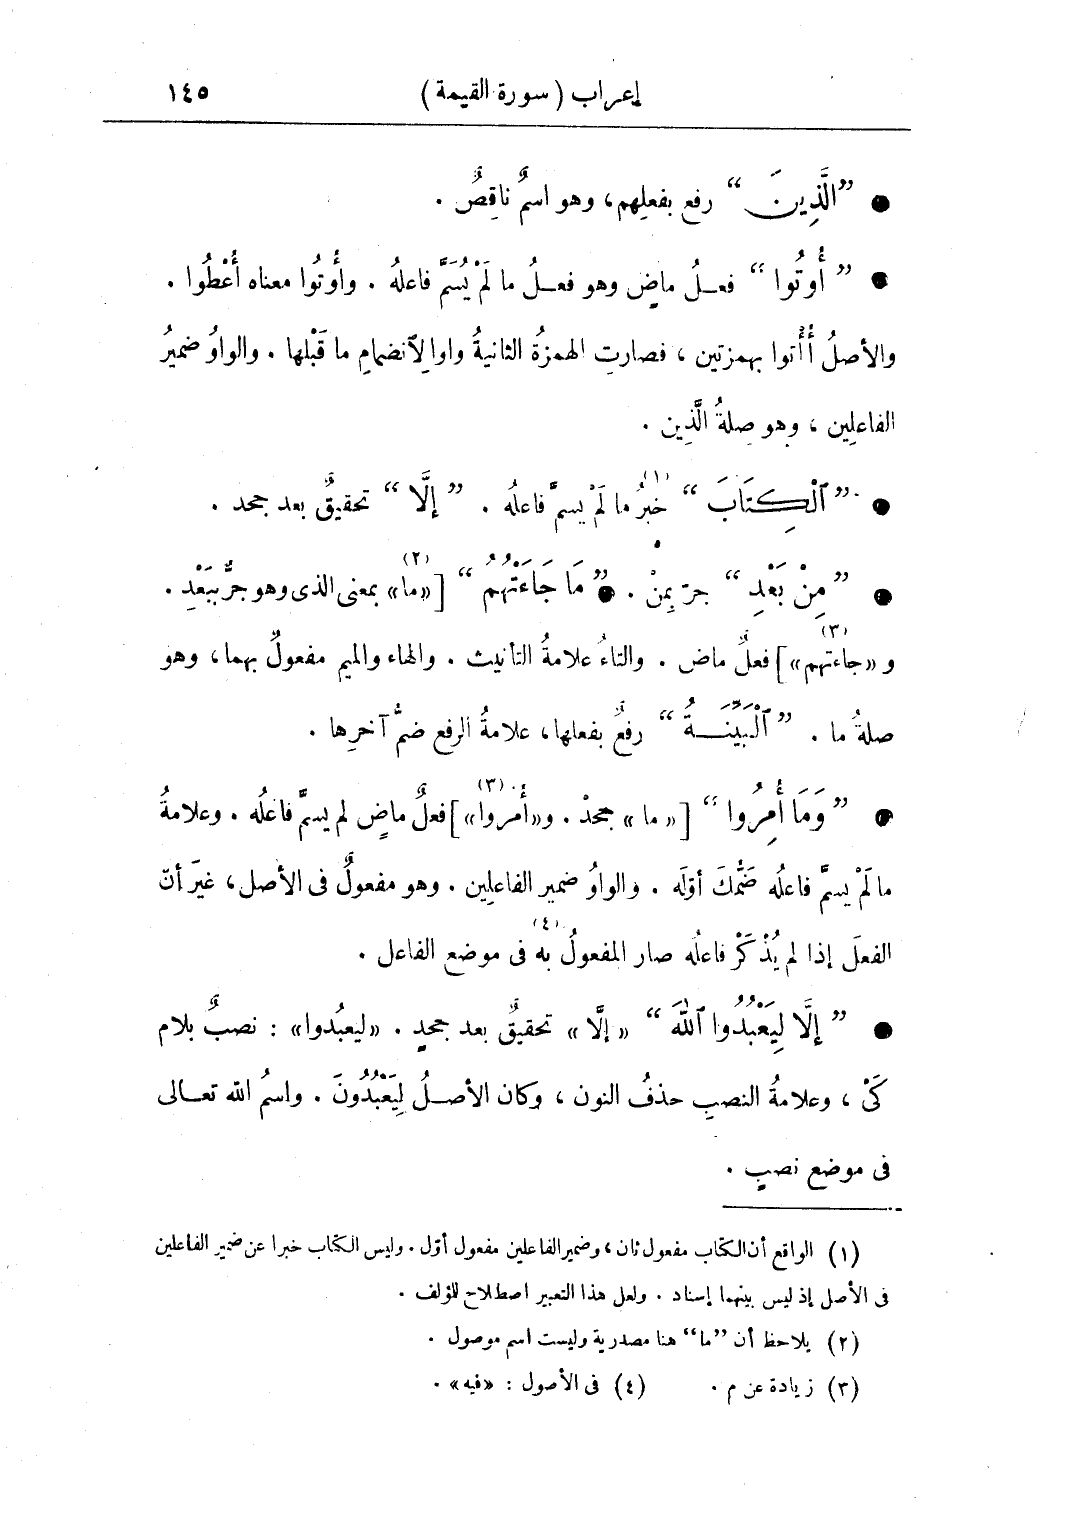 إعراب ( سورة القيمة ) ١٤٥
● ”الَّذِينَ“ رفع بفعلِهم، وهو اسمٌ ناقِصٌ .
● ”أُوتُوا“ فعـلُ ماضٍ وهو فعـلُ ما لَمْ يُسَمَّ فاعلهُ . وأُوتُوا معناه أُعْطُوا .
والأصلُ أُأْتوا بهمزتين ، فصارتِ الهمزةُ الثانيةُ واوا لِآنضمامِ ما قَبْلها . والواوُ ضميرُ
الفاعلِين ، وهو صلةُ الَّذِين .
● ”ٱلْكِتَابَ“ خبرُ(١) ما لَمْ يسمَّ فاعلُه . ”إلَّا“ تحقيقٌ بعد جحد .
● ”مِنْ بَعْدِ“ جرّ بِمِنْ . ● ”مَا جَاءَتْهُمُ“ [«ما»(٢) بمعنى الذى وهو جرٌّ ببَعْدِ .
و «جاءتهم»](٣) فعلٌ ماض . والتاءُ علامةُ التأنيث . والهاء والميم مفعولٌ بهما، وهو
صلةُ ما . ”ٱلْبَيِّنَـــةُ“ رفعٌ بفعلها، علامةُ الرفع ضمُّ آخرِها .
● ”وَمَا أُمِرُوا“ [«ما» جحدٌ . و«أُمروا»](٣) فعلٌ ماضٍ لم يسمَّ فاعلُه . وعلامةُ
ما لَمْ يسمَّ فاعلُه ضَمُّكَ أوّلَه . والواوُ ضمير الفاعلِين . وهو مفعولٌ فى الأصل، غيرَ أنّ
الفعلَ إذا لم يُذْكَرْ فاعلُه صار المفعولُ به(٤) فى موضع الفاعل .
● ”إلَّا لِيَعْبُدُوا ٱللهَ“ «إلَّا» تحقيقٌ بعد جحدٍ . «ليعبُدوا» : نصبٌ بلام
كَىْ ، وعلامةُ النصبِ حذفُ النون ، وكان الأصـلُ لِيَعْبُدُونَ . واسمُ الله تعـالى
فى موضع نصبٍ .
(١) الواقع أن الكتاب مفعول ثان، وضمير الفاعلين مفعول أوّل . وليس الكتاب خبرا عن ضمير الفاعلين
فى الأصل إذ ليس بينهما إسناد . ولعل هذا التعبير اصطلاح للؤلف .
(٢) يلاحظ أن ”ما“ هنا مصدرية وليست اسم موصول .
(٣) زيادة عن م . (٤) فى الأصول : «فيه» .